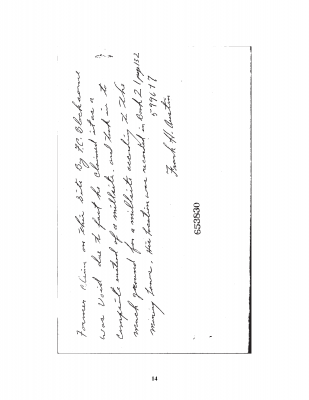 Former Claim on this site By H.C. Blackamore
was Void due to fact he claimed it as a
campsite instead of a millsite and took in to
much ground for a millsite according to the
mining laws. His location was recorded in Book 21 page 132
599617
Frank H. Austin
653830
14